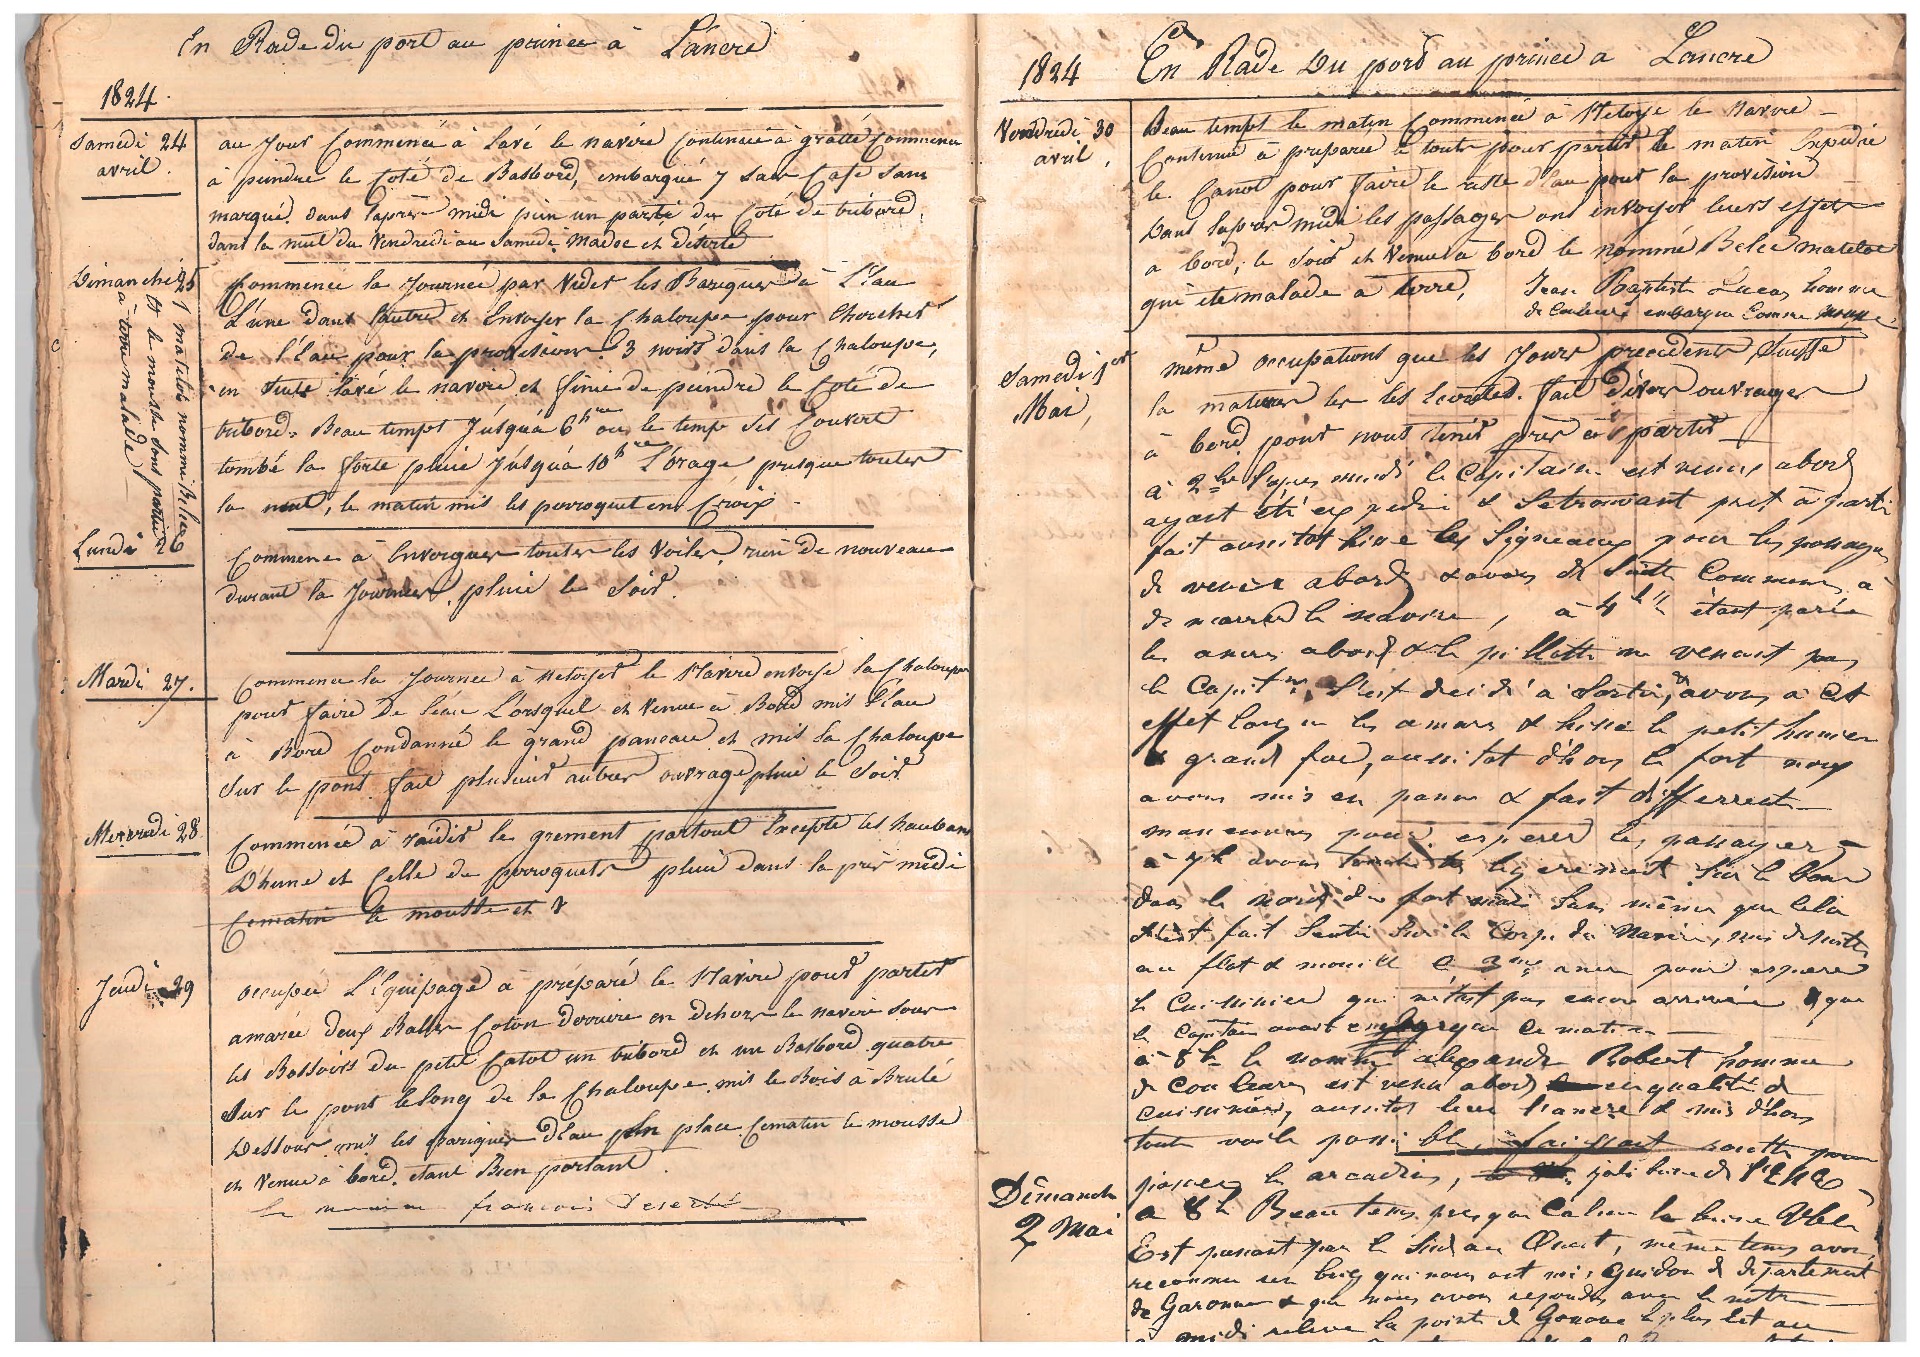 En Rade du port au prince à L'ancre
1824.
Samedi 24
avril.
au Jour Commencé à Lavé le navire Continué à gratté Commencé
à peindre le Coté de Basbord, embarqué 7 Sacs Café Sans
marque. dans l'après midi pein un parti du Coté de tribord.
dans la nuit du Vendredi au Samedi Madoc et déserté
Dimanche 25
1 matelot nommé Belec
et le mousse sont partie
à terre malade
Commencé la Journée par Vider les Bariques à L'Eau
L'une dans l'autre et Envoyer la Chaloupe pour Chercher
de l'Eau pour la provisions. 3 noirs dans la Chaloupe,
en Suite lavé le navire et finie de peindre le Coté de
tribord. Beau temps Jusqu'à 6h ou le temp s'es Couvert
tombé la forte pluie Jusqu'à 10h L'orage presque toutes
la nuit, le matin mis les perroquet en Croix.
Lundi 26
Commencé à Envergues toutes les Voiles, rien de nouveau
durant la Journée, pluie le Soir.
Mardi 27.
Commence la Journée à Netoyer le Navire envoyé la Chaloupe
pour faire De l'éau Lorsquel et Venue à Bord mis L'éau
à Bord Condanné le grand paneau et mis la Chaloupe
Sur le pont. fait plusieurs autres ouvrage pluie le Soir
Mercredi 28
Commencé à raidir le grement partout Excepté les haubans
D'hune et Celle de perroquets pluie dans la près médi
Cematin le mousse et
Jeudi 29
occupée L'Equipage à préparé le Navire pour parter
amarée deux Balles Coton derriere en dehors le navire Sous
les Bossoirs du petit Canot un tribord et un Basbord quatre
Sur le pont le long de la Chaloupe. mis le Bois à Brulé
Dessous mis les Bariques D'eau en place. Cematin le mousse
et Venue à bord. etant Bien portant.
francois Deserté
1824 En Rade Du port au prince a Lancre
Vendredi 30
avril,
Beau temps le matin Commencé à Netoyé le Navire
Continué à preparée le toute pour parter le matin Expedié
le Canot pour faire le reste d'eau pour la provision
Dans l'apres midi les passager ons envoyer leurs effets
a bord, le Soir et Venue à bord le nommé Belec matelot
qui ete malade à terre, Jean Baptist Lucas homme
de Couleur embarqué Comme mousse.
Samedi 1er
Mai,
même occupations que les Jours precedents, Suiffé
la mature les Ecoutes. fait divers ouvrages
à bord pour nous tenir près à partir
à 2h l'apres midi le Capitaine est venu abord
ayant été expedié & Se trouvant pret à partir
fait aussitot hisse les Signeaux pour les passager
de venir abord & avons de Suitte Commencé à
de marrer le navire, à 4h étant parée
les ancres abord & le pillotte ne venait pas
le Capitne S'est decidé à Sortir, avons a cet
effet largue les amars & hisse le petit hunier
& grand foc, aussitot d'hors le fort nous
avons mis en panne & fait differrente
manoeuvres pour esperer les passagers
à 7h avons touche legerement Sur le banc
dans le nord du fort mais Sans même que Cela
S'est fait Sentir Sur le Corps du Navire, mis de suitte
au flot & mouillé ancre pour esperer
le Cuisinier qui n'étais pas encore arrivée & que
le Capitain avait engage que ce matin
à 8h le nommé alexandre Robert homme
de Couleur est venu abord en qualité de
Cuisinier, aussitot leve l'ancre & mis d'hors
toute voile possible, faissant routte pour
passer les arcadins, joli brise de l'ENE
Dimanche
2 Mai
à 8h Beau tems presque Calme la brise Vble
Est passant par le Sud au Ouest, même tems avons
reconnu un brig qui nous ont mis Guidon de departement
de Garonne & que nous avons repondu avec le nôtre
à midi releve la pointe de Gonave le plus Est au